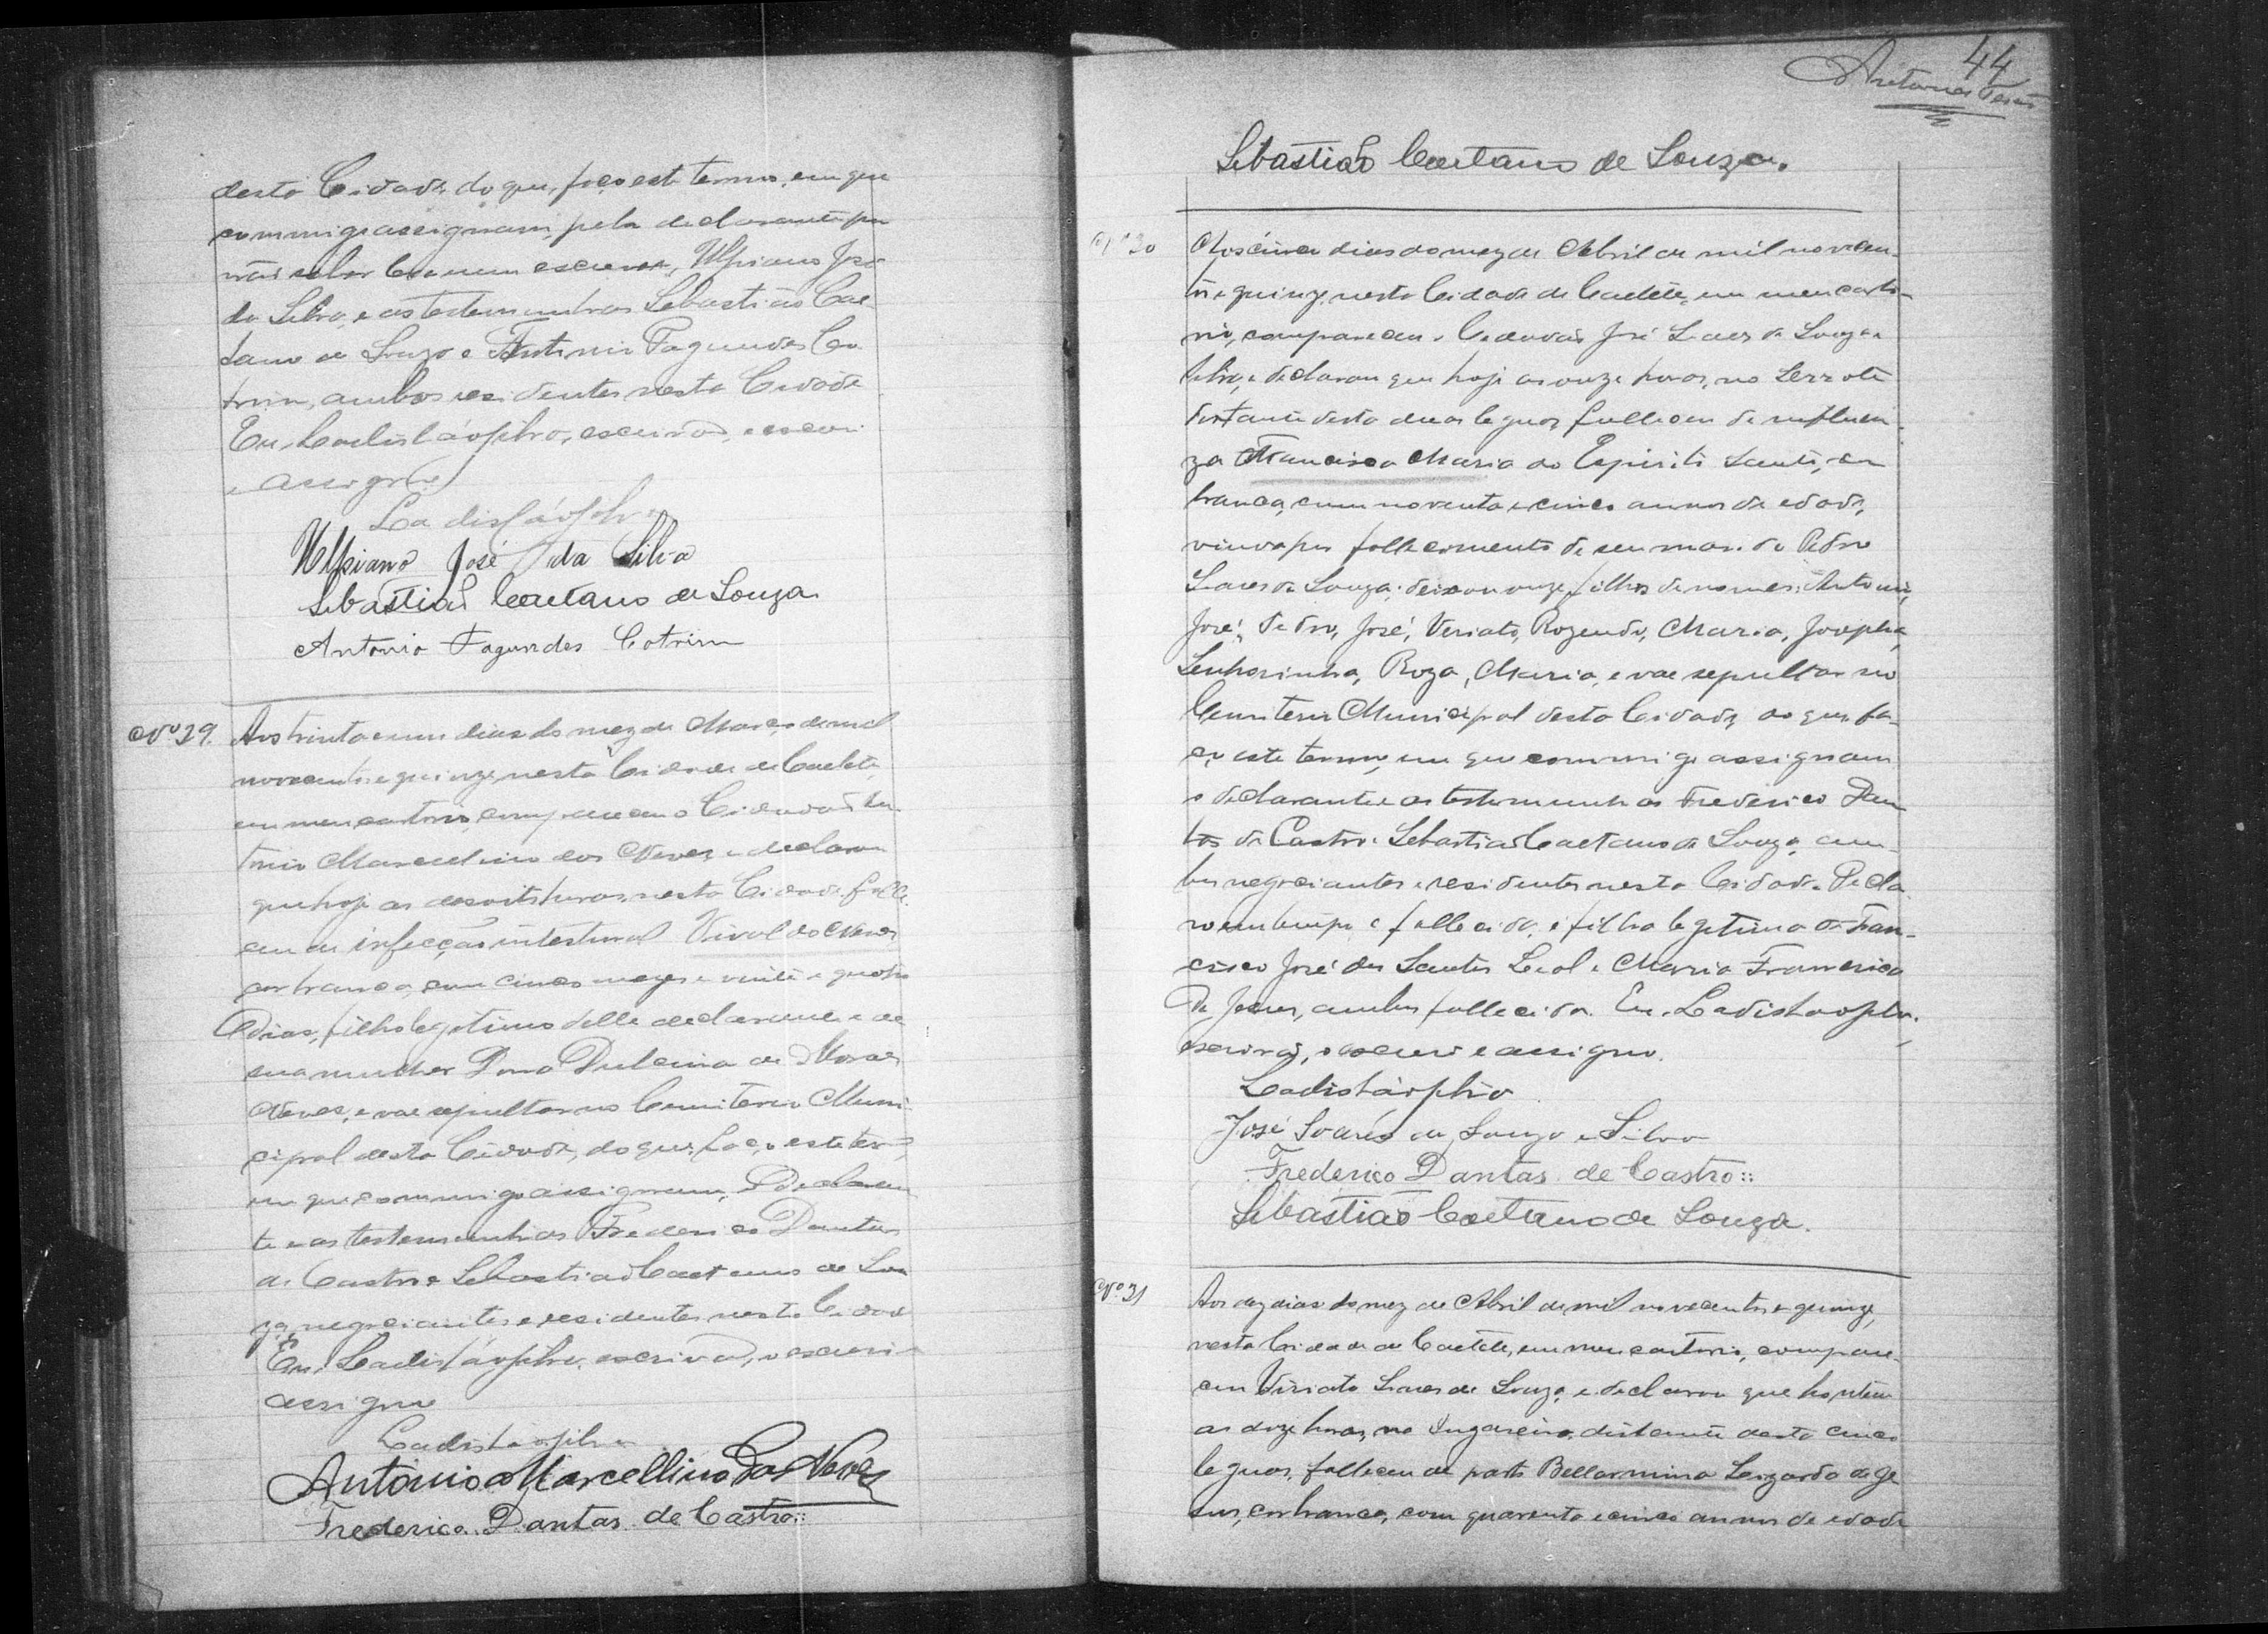 desta Cidade, do que, faço este termo, em que
commigo assignam, pela declarante por
não saber ler nem escrever, Ulpiano José
da Silva, e as testemunhas Sebastião Cae-
tano de Souza e Antonio Fagundes Co-
trim, ambos residentes nesta Cidade
Eu, Ladisláo Silva, escrivão, o escrevi
e assigno
Ladisláo Silva
Ulpiano José da Silva
Sebastião Caetano de Souza
Antonio Fagundes Cotrim
Nº 29. Aos trinta e um dias do mez de Março de mil
novecentos e quinze, nesta Cidade de Caeteté,
em meu cartorio, compareceu o Cidadão An-
tonio Marcellino das Neves e declarou
que hoje as desoito horas, nesta Cidade, falle-
ceu de infecção intestinal Nival das Neves
cor branca, com cinco mezes e vinte e quatro
dias, filho legitimo delle declarante e de
sua mulher Dona Dulcina de Moraes
Neves, e vae sepultar no Cemiterio Muni-
cipal desta Cidade, do que, faço este termo,
em que commigo assignam, o declaran-
te e as testemunhas Frederico Dantas
de Castro e Sebastião Caetano de Sou-
za, negociantes e residentes nesta Cidade
Eu, Ladisláo Silva, escrivão, o escrevi e
assigno
Ladisláo Silva
Antonio Marcellino das Neves
Frederico Dantas de Castro::
44
Antonio
Sebastião Caetano de Souza.
Nº 30 Aos cinco dias do mez de Abril de mil novecen-
tos e quinze, nesta Cidade de Caeteté, em meu carto-
rio, compareceu o Cidadão José Soares de Souza e
Silva, e declarou que hoje as onze horas, no Serrote
distante desta duas leguas, falleceu de influen-
za Francisca Maria do Espirito Santo, cor
branca, com noventa e cinco annos de edade,
viuva por fallecimento de seu marido Pedro
Soares de Souza; deixou onze filhos de nomes: Antonio,
José, Pedro, José, Veriato, Rozendo, Maria, Josepha,
Senhorinha, Roza, Maria, e vae sepultar no
Cemiterio Municipal desta Cidade, do que, fa-
ço este termo, em que commigo assignam
o declarante e as testemunhas Frederico Dan-
tas de Castro e Sebastião Caetano de Souza, am-
bos negociantes e residentes nesta Cidade. Decla-
ro em tempo: a fallecida é filha legitima de Fran-
cisco José dos Santos Leal e Maria Francisca
de Jesus, ambos fallecidos. Eu, Ladisláo Silva,
escrivão, o escrevi e assigno.
Ladisláo Silva
José Soares de Souza e Silva
Frederico Dantas de Castro::
Sebastião Caetano de Souza.
Nº 31 Aos dez dias do mez de Abril de mil novecentos e quinze,
nesta Cidade de Caeteté, em meu cartorio, compare-
ceu Viriato Soares de Souza, e declarou que hontem
as doze horas, no Ingazeiro, distante desta cinco
leguas, falleceu de parto Bellarmina Lizarda de Je-
sus, cor branca, com quarenta e cinco annos de edade